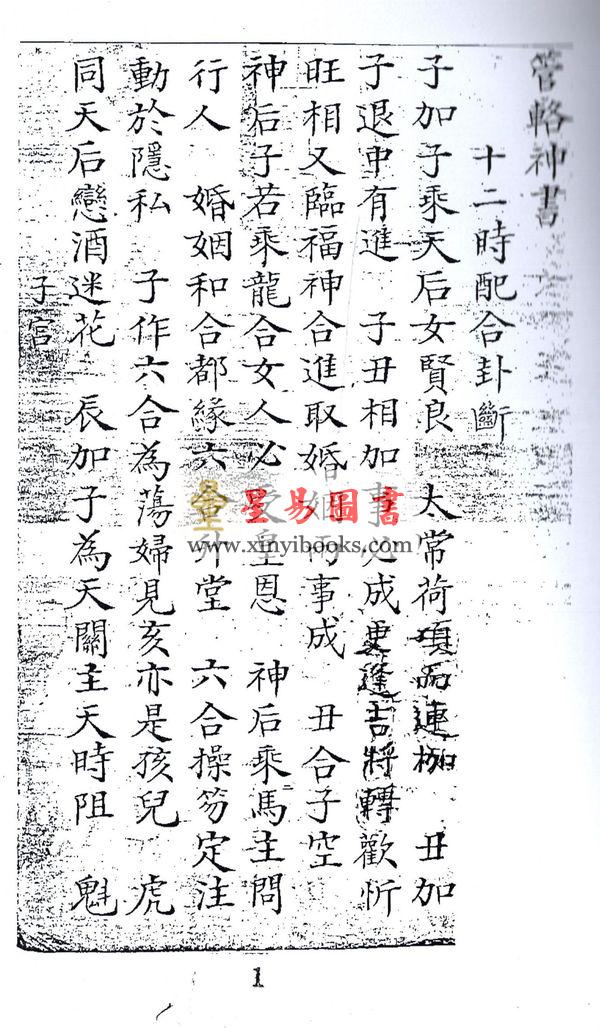 管輅神書
十二時配合卦斷
子加子乘天后女賢良　太常荷項而連枷　丑加
子退中有進　子丑相加事必成更逢吉將轉歡忻
旺相又臨福神合進取婚姻兩事成　丑合子空
神后子若乘龍合女人必受皇恩　神后乘馬主問
行人　婚姻和合都緣六　升堂　六合操笏定注
動於隱私　子作六合為蕩婦見亥亦是孩兒　虎
同天后戀酒迷花　辰加子為天關主天時阻　魁
子宮
星易圖書
www.xinyibooks.com
1